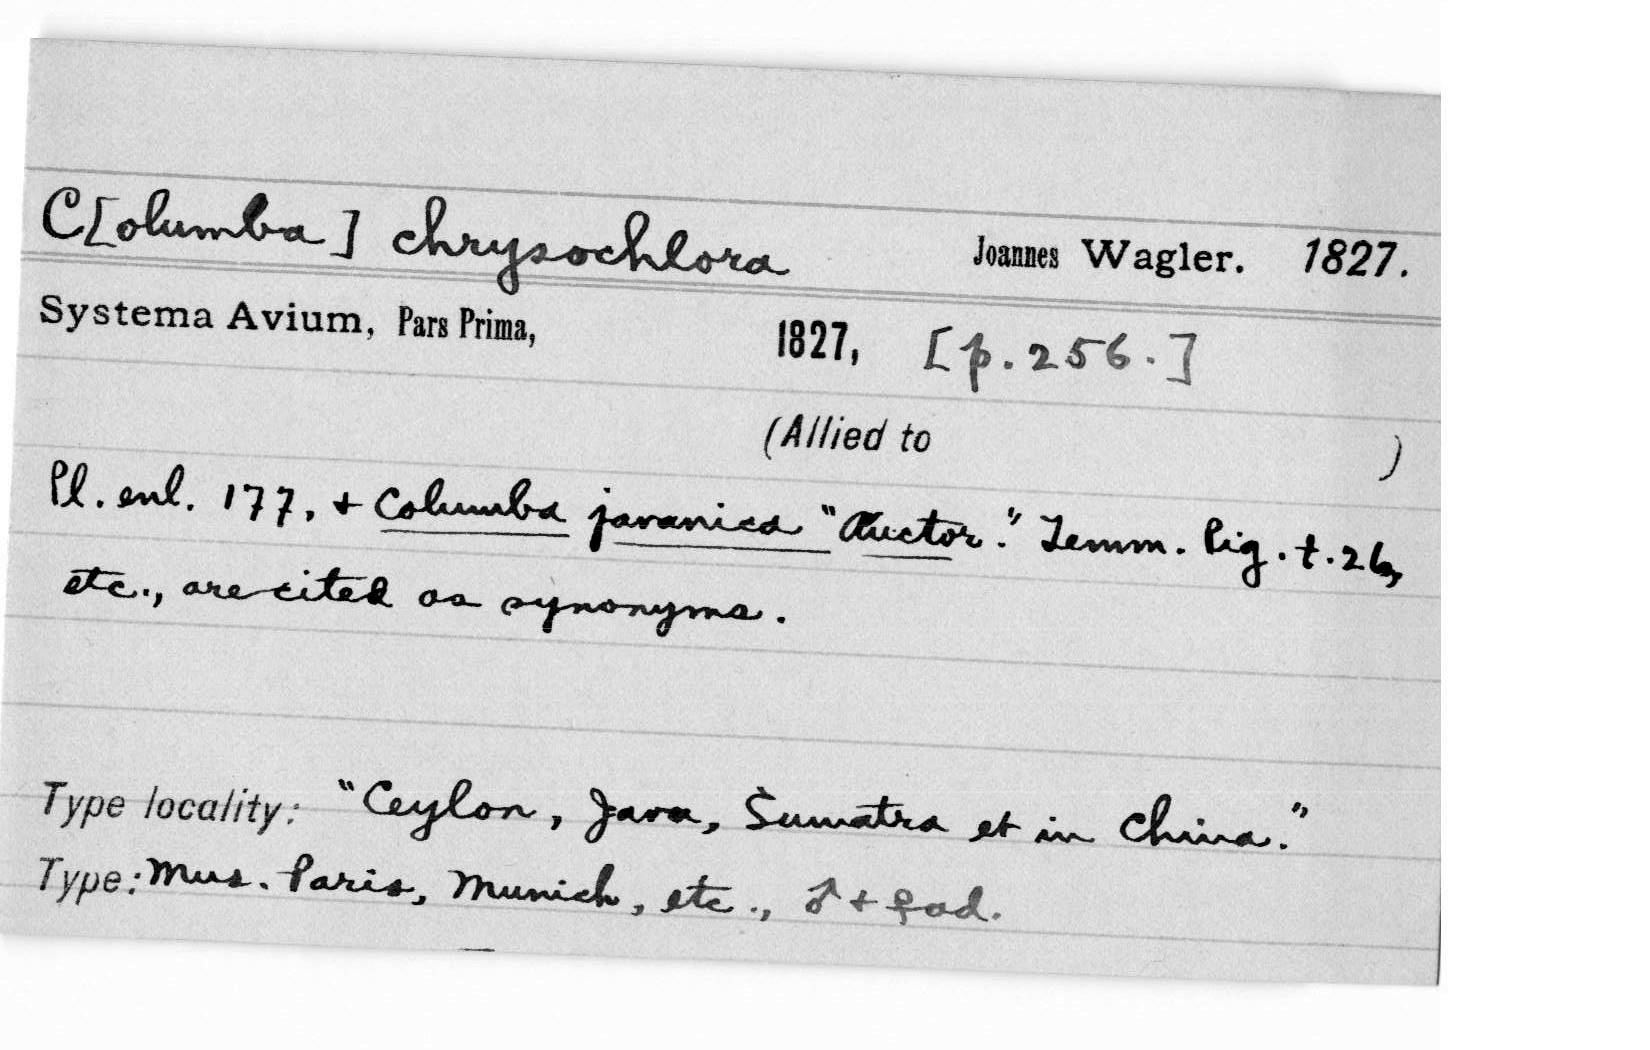 C[olumba] chrysochlora Joannes Wagler. 1827.
Systema Avium, Pars Prima, 1827, [p. 256.]
(Allied to )
Pl. enl. 177, + Columba javanica "Auctor." Temm. Pig. t. 26,
etc., are cited as synonyms.
Type locality: "Ceylon, Java, Sumatra et in China."
Type: Mus. Paris, Munich, etc., ♂ + ♀ ad.